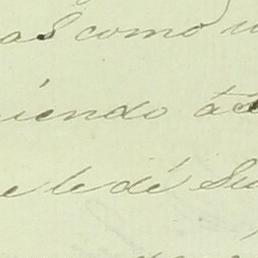 as como
iendo á
e le dé Su